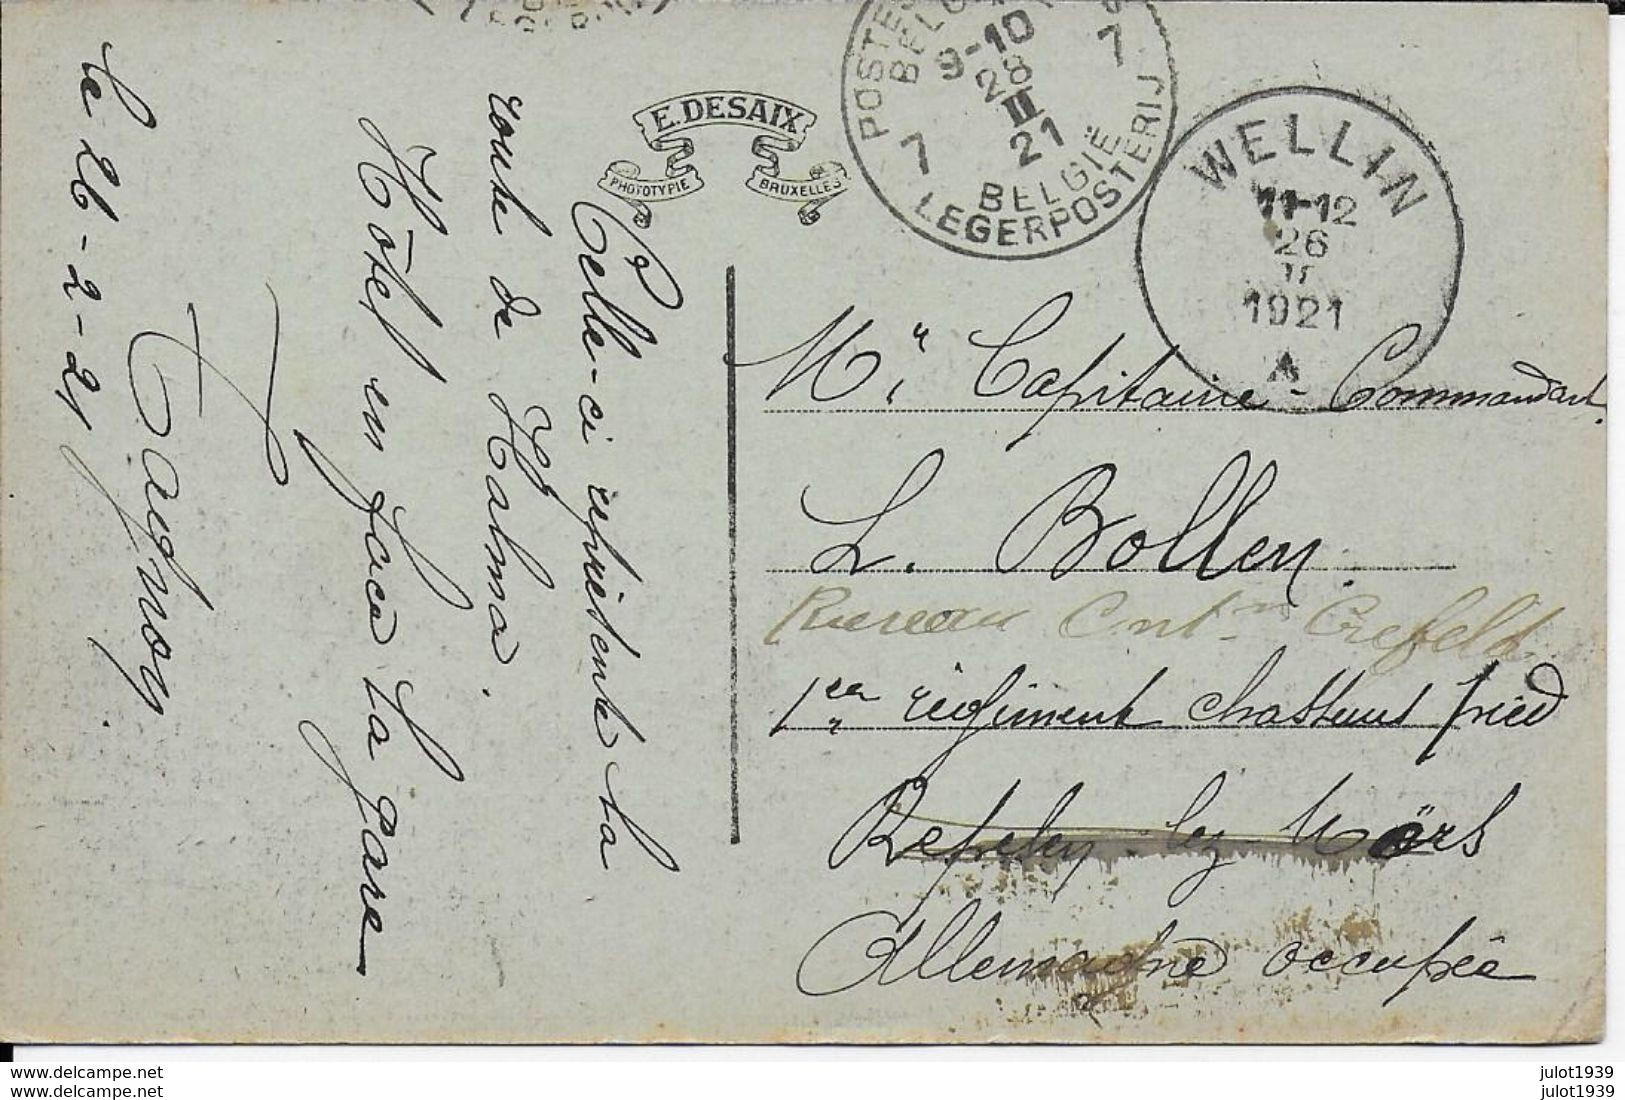 E. DESAIX
PHOTOTYPIE BRUXELLES
POSTES
BELG
9-10
28
II
21
7 7
BELGIË
LEGERPOSTERIJ
WELLIN
11-12
26
II
1921
A
Celle-ci représente la
route de Halma.
Hôtel en face la gare
Tagnoy.
le 26-2-21
Mr Capitaine-Commandant
L. Bollen.
Bureau Cnt Crefeld
1er régiment chasseurs pied
lez Mörs
Allemagne occupée
julot1939
julot1939